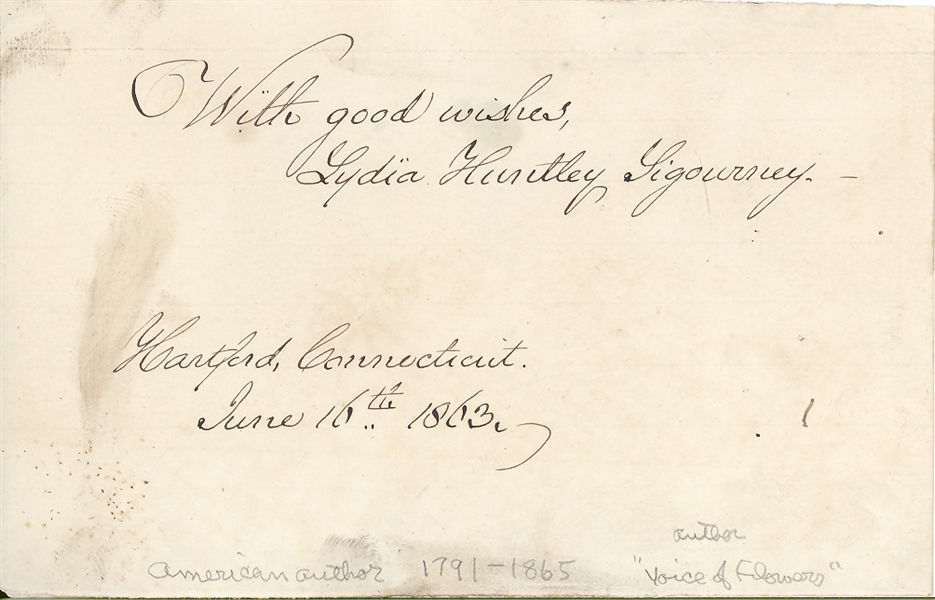 With good wishes,
Lydia Huntley Sigourney. –
Hartford, Connecticut.
June 16th 1863.
author
american author 1791-1865 "Voice of Flowers"